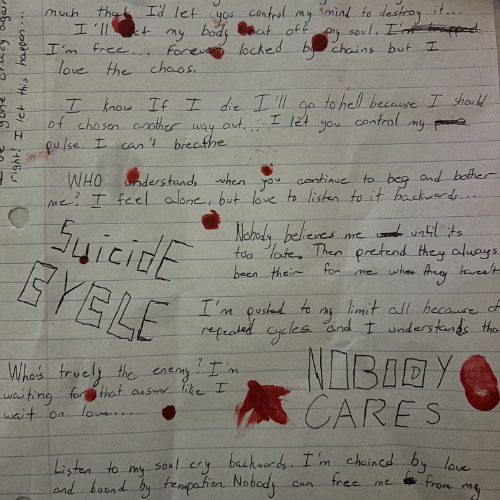 much that I'd let you control my mind to destroy it...
I'll let my body eat off my soul. I'm trapped
I'm free... Forever locked by chains but I
love the chaos.
I know If I die I'll go to hell because I should
of chosen another way out... I let you control my
pulse. I can't breathe
WHO understands when you continue to beg and bother
me? I feel alone, but love to listen to it backwards...
SuicidE
CYCLE
Nobody believes me until its
too late. Then pretend they always
been their for me when they haven't
I'm pushed to my limit all because of
repeated cycles. and I understands tho
Who's truely the enemy? I'm
waiting for that answer like I
wait on love...
NOBODY
CARES
Listen to my soul cry backwards. I'm chained by love
and bound by tempation. Nobody can free me from my
crazy again
right? I let this happen...